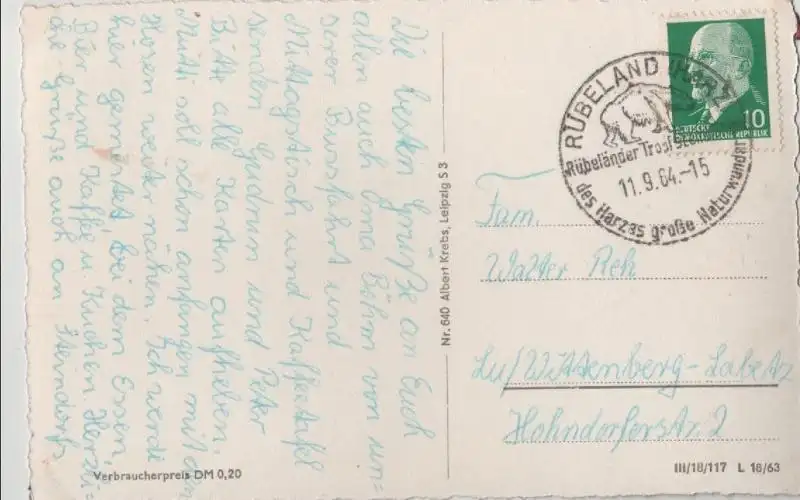 Die besten Grüße an Euch
allen auch Oma Böhm von un=
serer Busfahrt und
Mittagstisch und Kaffeetafel
senden Gudrun und Peter
Bitte alle Karten aufheben.
Mutti soll schon anfangen mit den
Hosen weiter nähen. Ich werde
hier gemästet bei dem Essen
Bier und Kaffee u. Kuchen Herzli=
che Grüße auch an Steindorfs
Verbraucherpreis DM 0,20
Nr. 640 Albert Krebs, Leipzig S 3
RÜBELAND (Harz)
Rübeländer Tropfstein
des Harzes große Naturwunder
11.9.64.-15
10
DEUTSCHE
DEMOKRATISCHE REPUBLIK
Fam.
Walter Reh
Lu/Wittenberg-Labetz
Hohndorferstr. 2
III/18/117 L 16/63